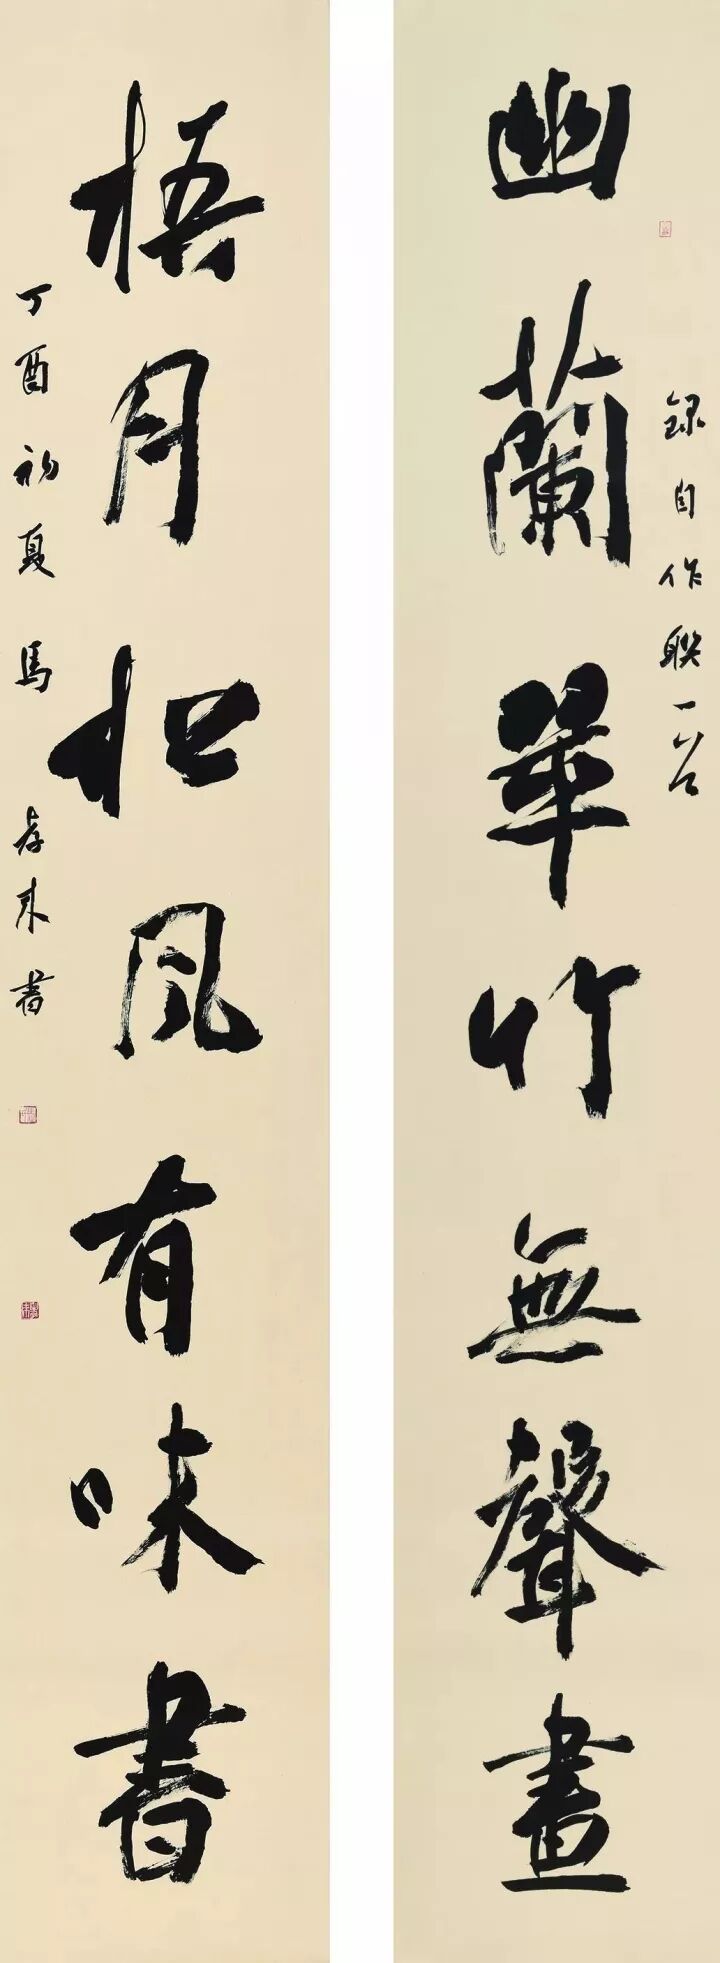 幽蘭翠竹無聲畫
録自作聯一
梧月松風有味書
丁酉初夏馬來書